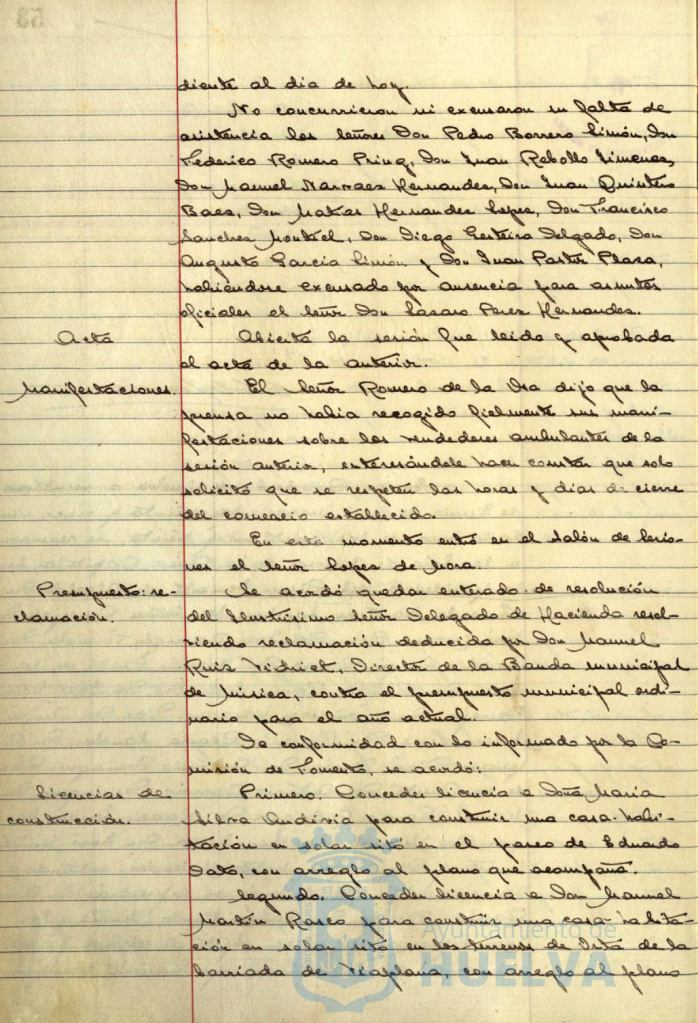 53
diente al dia de hoy.
No concurrieron ni excusaron su falta de
asistencia los Señores Don Pedro Borrero Limón, Don
Federico Romero Pring, Don Juan Rebollo Jimenez,
Don Manuel Narvaez Hernandez, Don Juan Quintero
Baez, Don Matias Hernandez Lopez, Don Francisco
Sanchez Montiel, Don Diego Delgado, Don
Augusto Garcia Limón y Don Juan Pastor Plaza,
habiendose excusado por ausencia para asuntos
oficiales el Señor Don Lazaro Perez Hernandez.
Acta
Abierta la sesión fue leida y aprobada
el acta de la anterior.
Manifestaciones.
El Señor Romero de la Osa dijo que la
prensa no habia recogido fielmente sus mani-
festaciones sobre los vendedores ambulantes de la
sesión anterior, interesándole hacer constar que solo
solicitó que se respeten las horas y dias de cierre
del comercio establecido.
En este momento entró en el salón de Sesio-
nes el Señor Lopez de Mora.
Presupuesto: re-
clamación.
Se acordó quedar enterado de resolución
del Ilustrisimo Señor Delegado de Hacienda resol-
viendo reclamación deducida por Don Manuel
Ruiz Vidriet, Director de la Banda municipal
de Música, contra el presupuesto municipal ordi-
nario para el año actual.
De conformidad con lo informado por la Co-
misión de Fomento, se acordó:
Licencias de
construcción.
Primero. Conceder licencia a Doña Maria
Silva para construir una casa-habi-
tación en solar sito en el paseo de Eduardo
Dato, con arreglo al plano que acompaña.
Segundo. Conceder licencia a Don Manuel
Martin Rasco para construir una casa-habita-
ción en solar sito en los terrenos de de la
barriada de Viaplana, con arreglo al plano
Ayuntamiento de
HUELVA